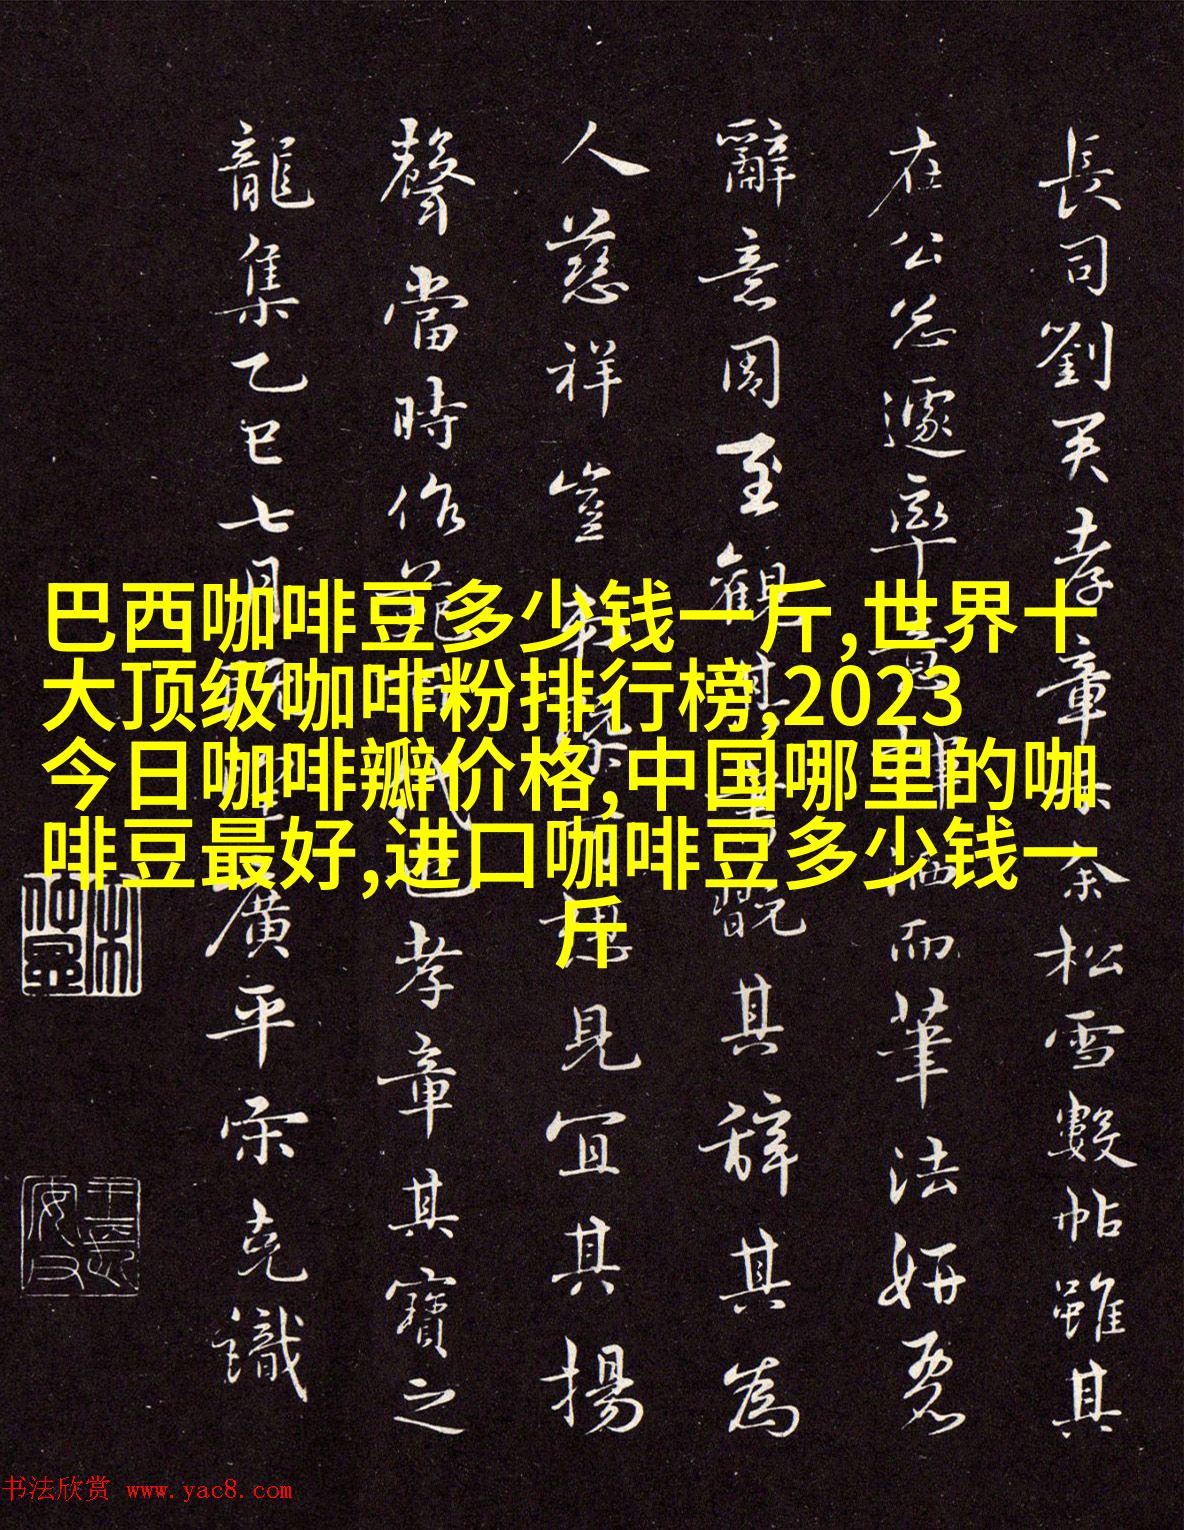 長司劉君孝章余松雪數帖雖其
在公忩遽率易揮洒而筆法妍
辭意周至觀其書翫其辭其為
人慈祥豈可想見宜其揚
聲當時作範百代也孝章其寶之
龍集乙巳七月既望廣平宋克識
巴西咖啡豆多少钱一斤,世界十
大顶级咖啡粉排行榜,2023
今日咖啡瓣价格,中国哪里的咖
啡豆最好,进口咖啡豆多少钱一
斤
书法欣赏 www.yac8.com